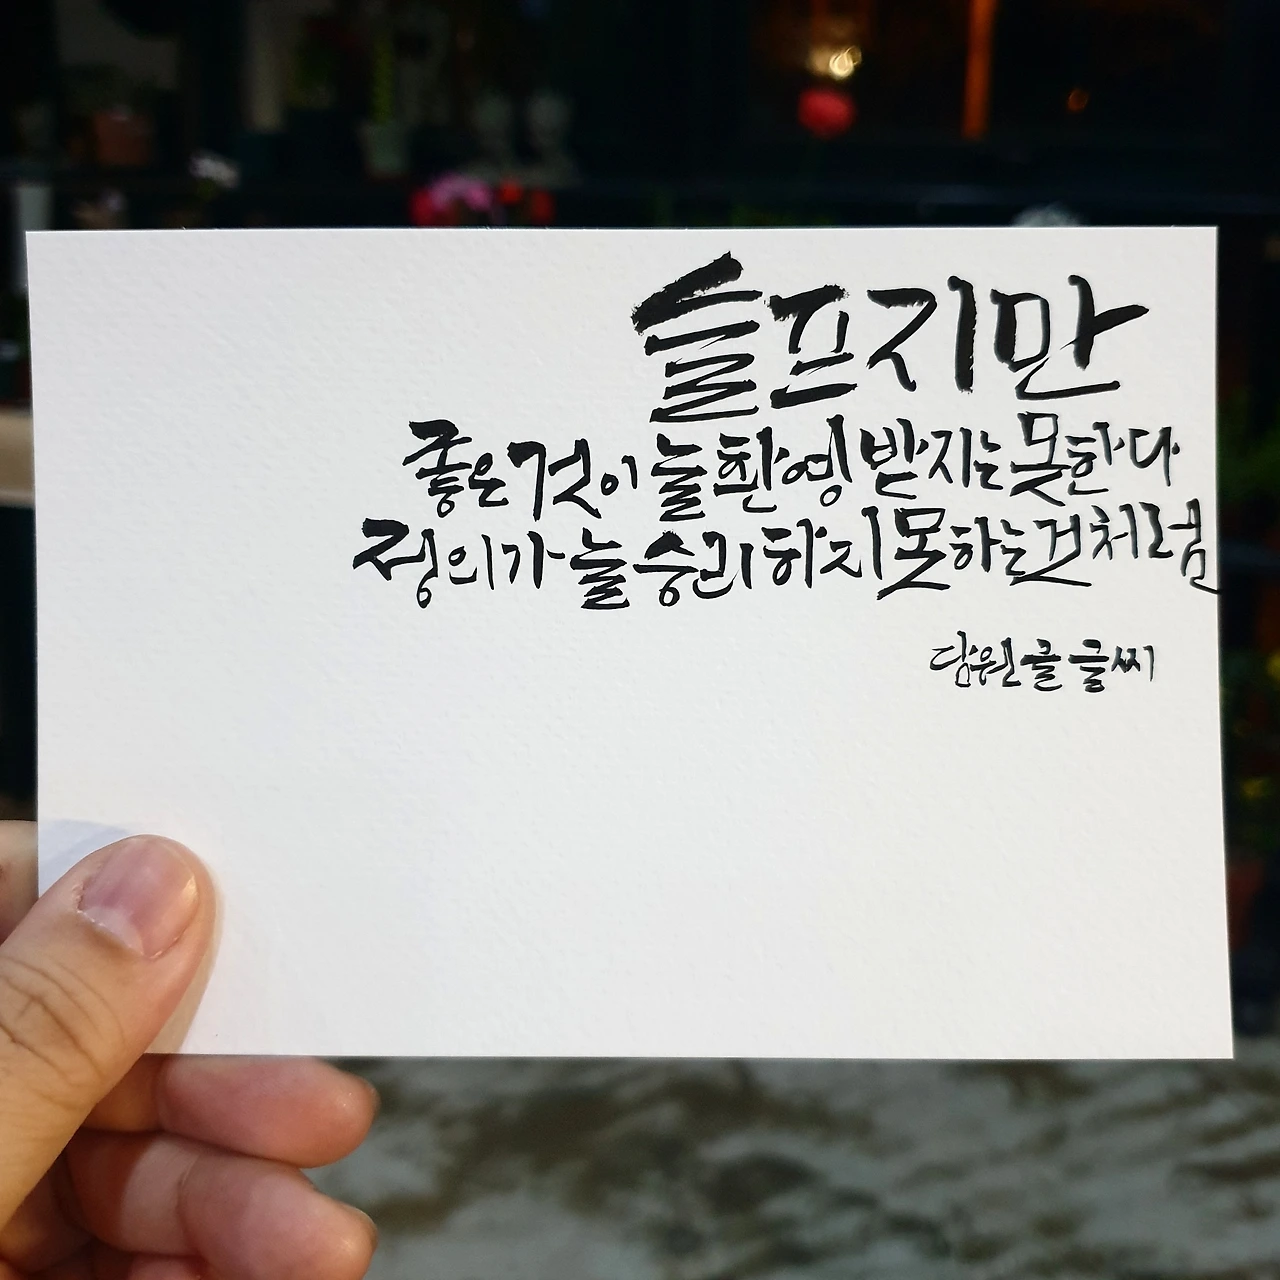 슬프지만
좋은 것이 늘 환영 받지는 못한다
정의가 늘 승리하지 못하는 것처럼
담원 글 글씨